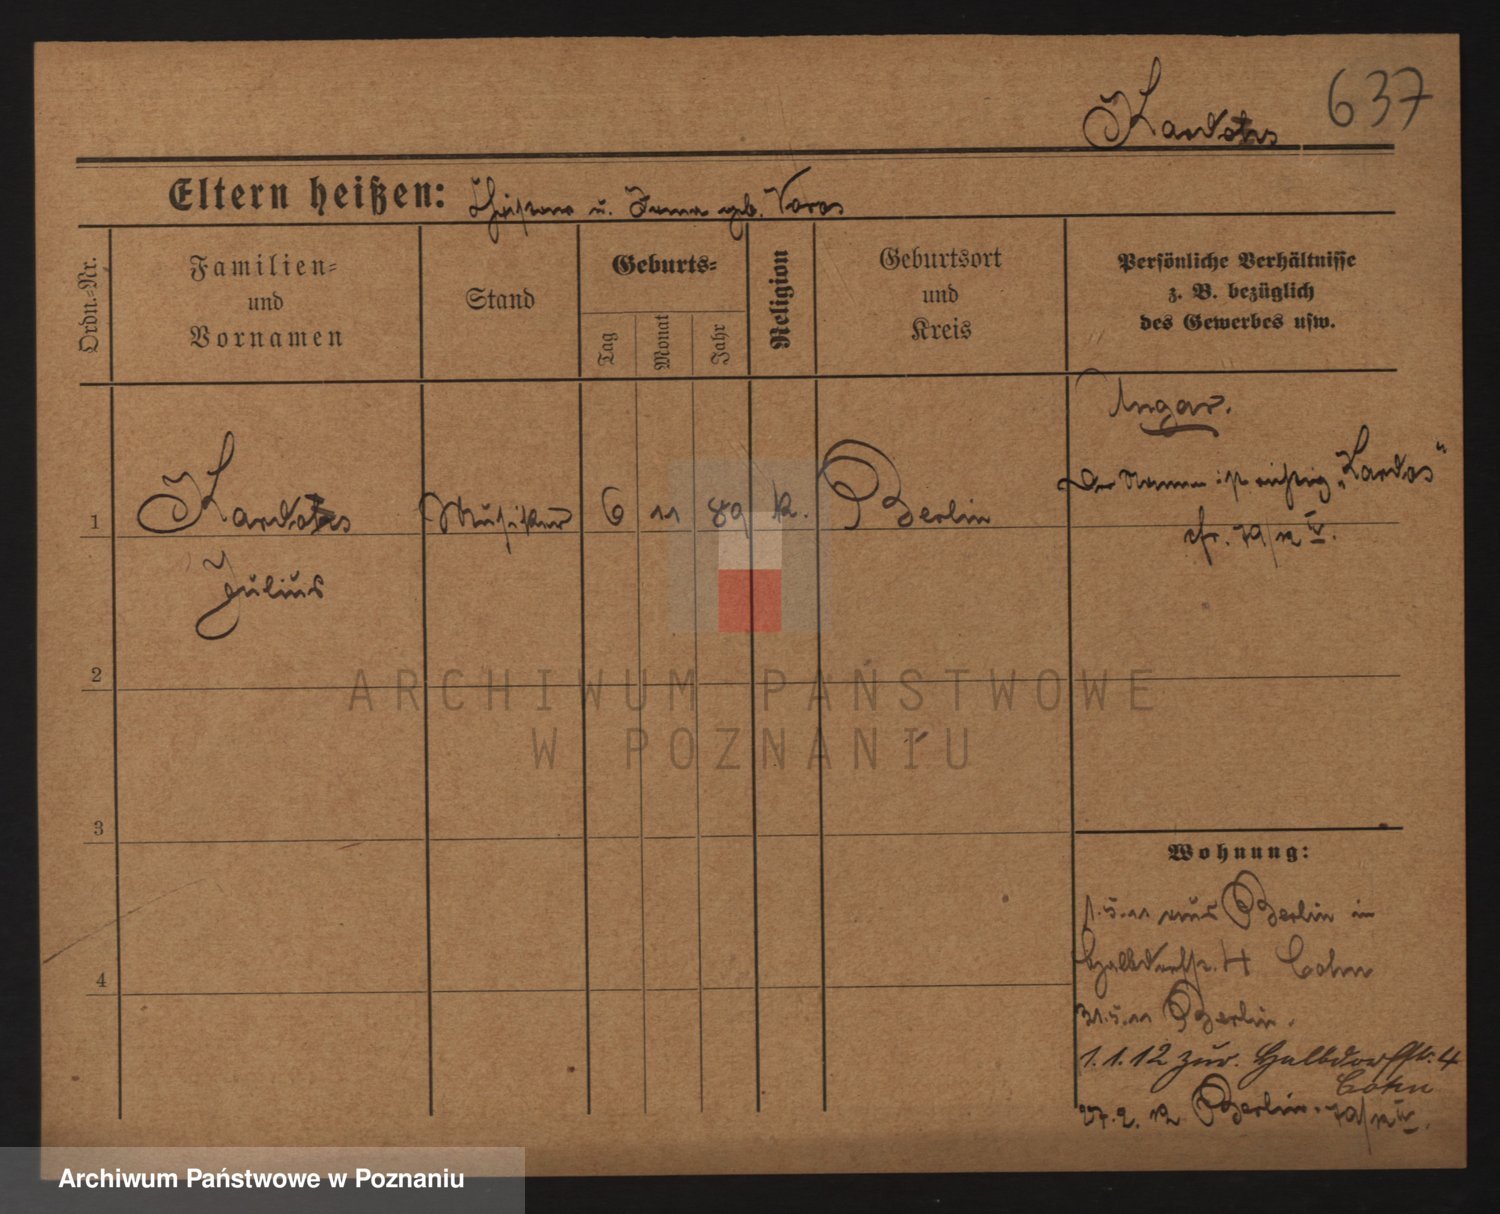 637
Kardos
Eltern heißen: u. Irma geb. Varos
Ordn.-Nr.
Familien-
und
Vornamen
Stand
Geburts-
Tag
Monat
Jahr
Religion
Geburtsort
und
Kreis
Persönliche Verhältnisse
z. B. bezüglich
des Gewerbes usw.
Ungar.
Der Name ist richtig „Kardos“
cfr. 79/12 IV.
1 Kardos Musiker 6 11 89 k. Berlin
Julius
2
3
4
Wohnung:
1.5.11 aus Berlin in
Halbdorfstr. 4 Cohn
31.5.11 Berlin.
1.1.12 zur. Halbdorfstr. 4
Cohn
27.2.12 Berlin. 79/12 IV.
ARCHIWUM PAŃSTWOWE
W POZNANIU
Archiwum Państwowe w Poznaniu